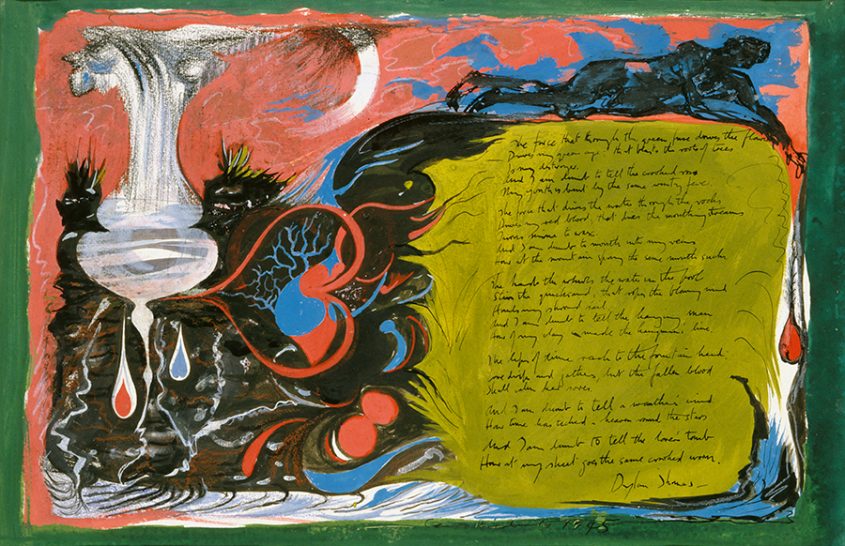 The force that through the green fuse drives the flower
Drives my green age that blasts the roots of trees
Is my destroyer.
And I am dumb to tell the crooked rose
My youth is bent by the same wintry fever.
The force that drives the water through the rocks
Drives my red blood, that dries the mouthing streams
Turns mine to wax.
And I am dumb to mouth unto my veins
How at the mountain spring the same mouth sucks
The hand that whirls the water in the pool
Stirs the quicksand, that ropes the blowing wind
Hauls my shroud sail
And I am dumb to tell the hanging man
How of my clay is made the hangman's lime.
The lips of time leech to the fountain head.
Love drips and gathers, but the fallen blood
Shall calm her sores.
And I am dumb to tell a weather's wind
How time has ticked a heaven round the stars
And I am dumb to tell the lovers tomb
How at my sheet goes the same crooked worm.
Dylan Thomas
1945